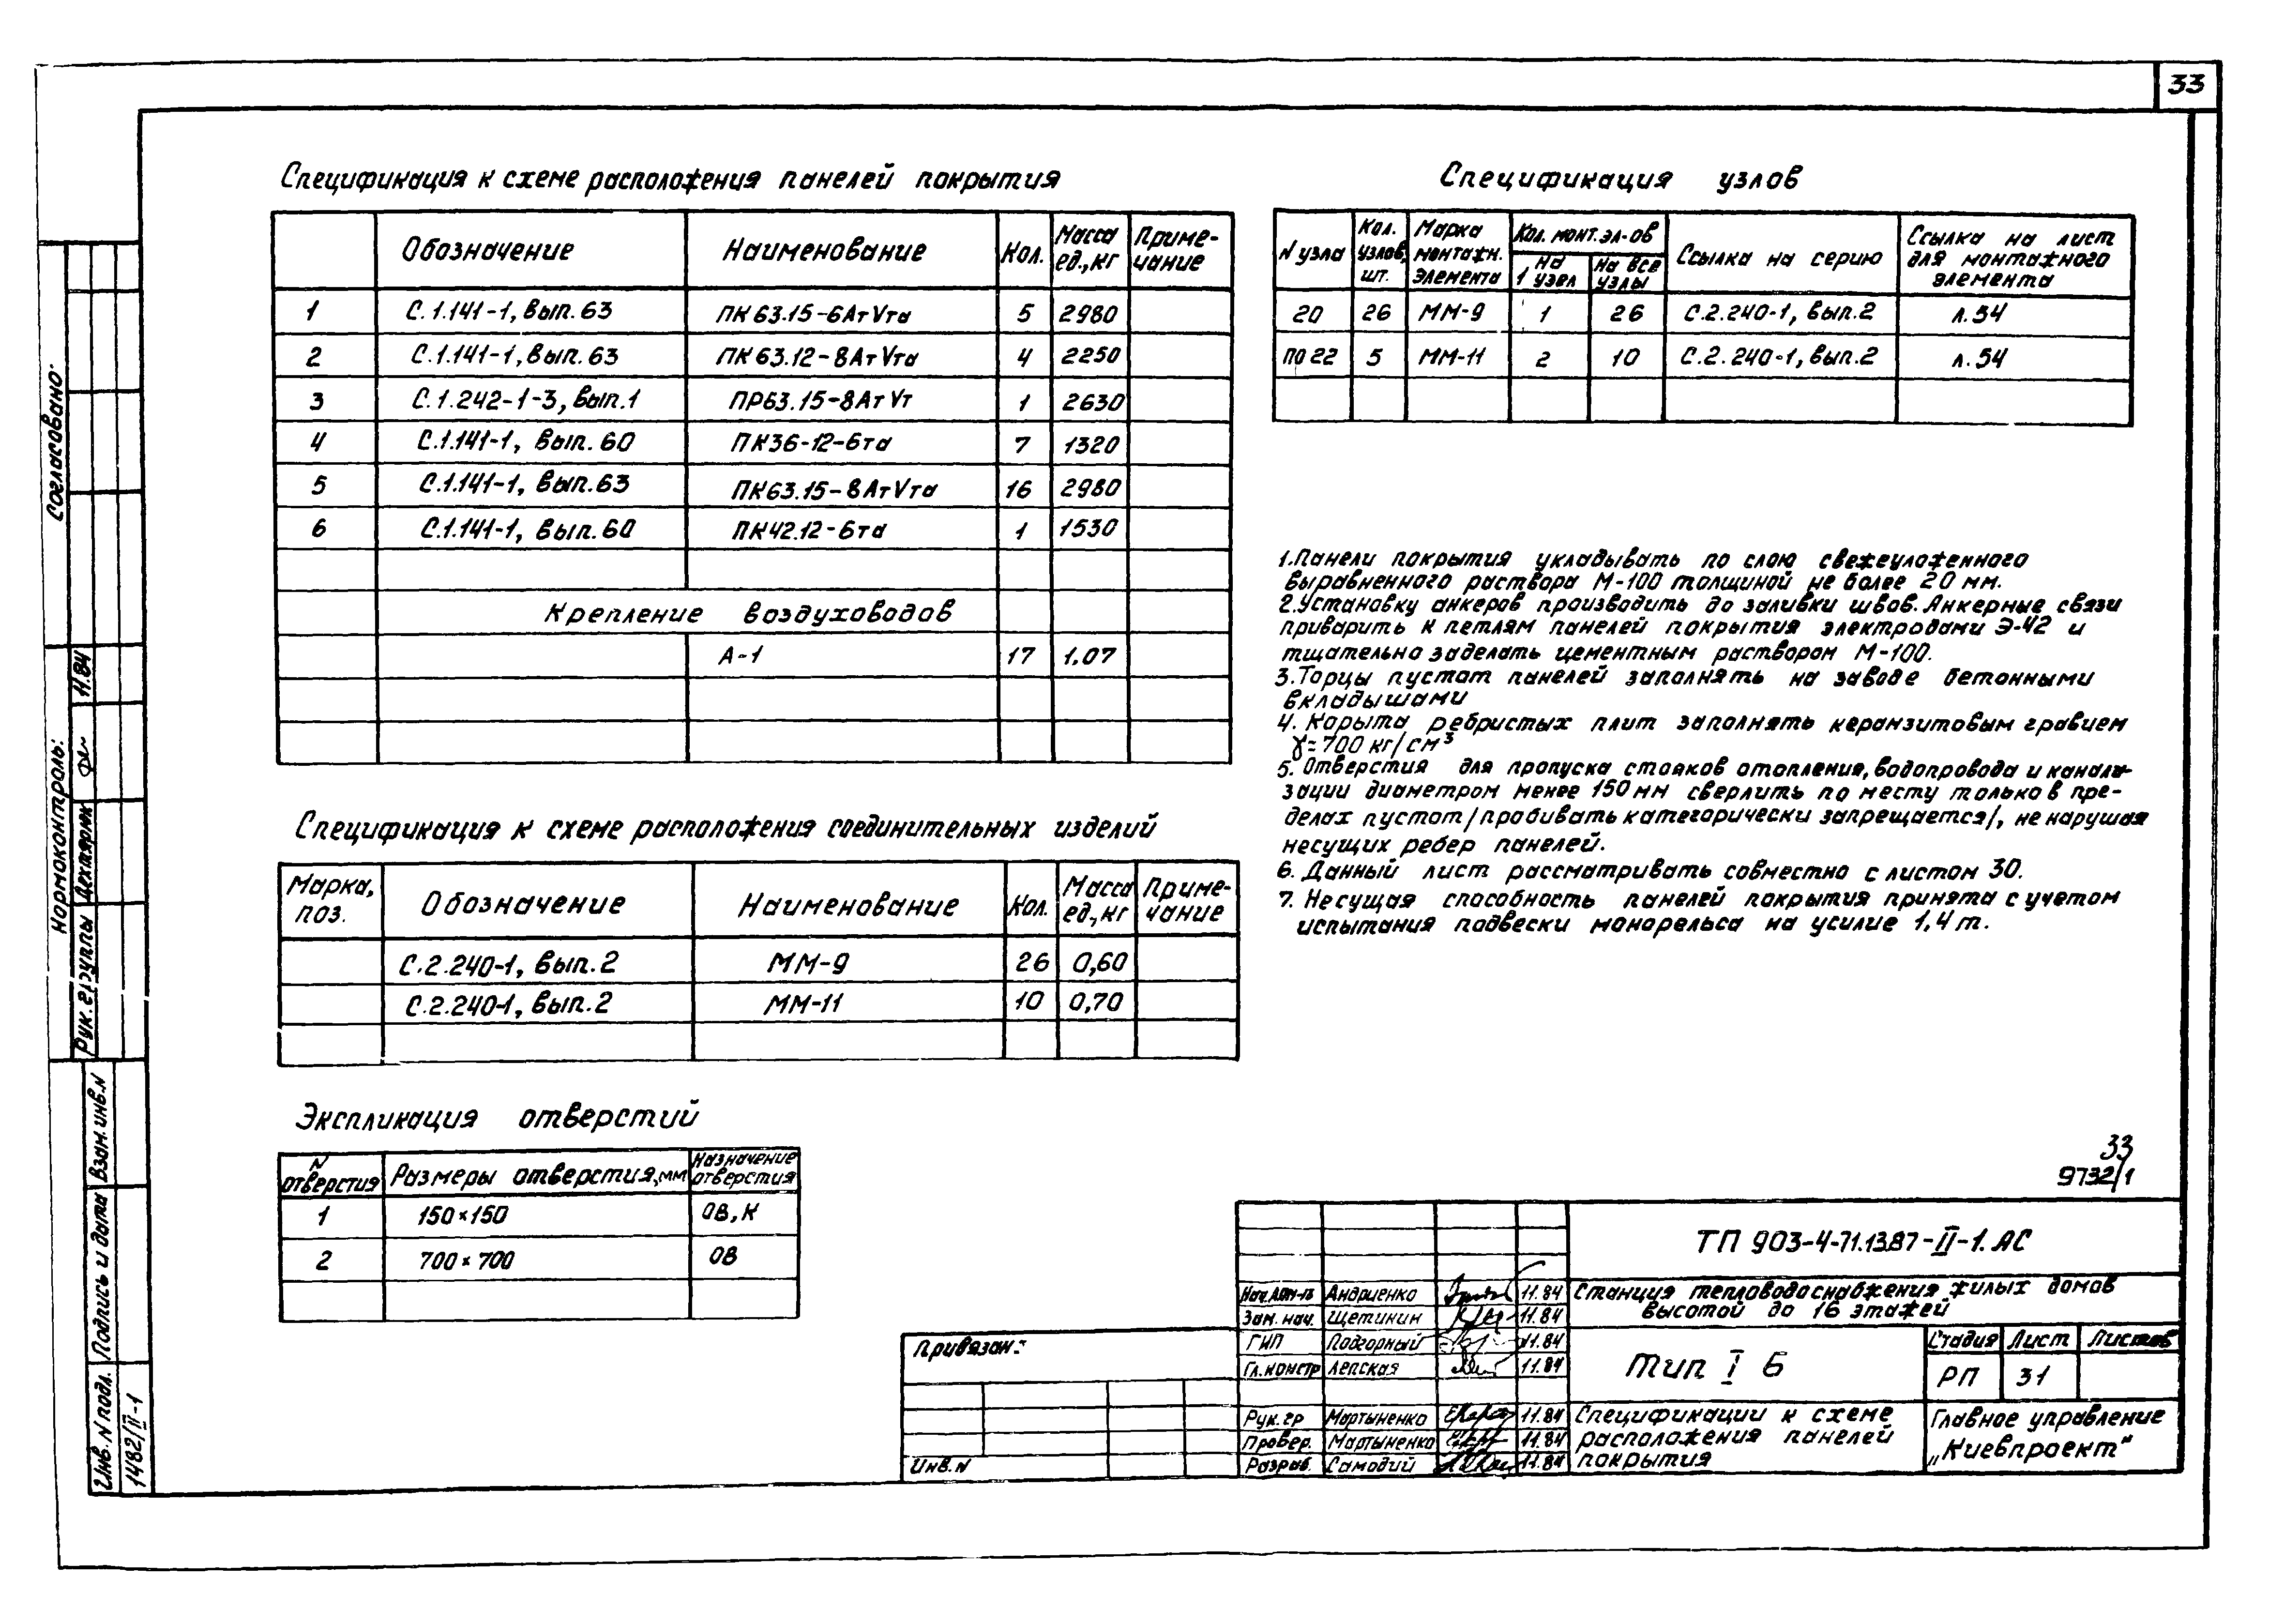 33
Спецификация к схеме расположения панелей покрытия
Обозначение Наименование Кол. Масса ед.,кг Приме-чание
1 С.1.141-1, вып.63 ПК63.15-6АтVта 5 2980
2 С.1.141-1, вып.63 ПК63.12-8АтVта 4 2250
3 С.1.242-1-3, вып.1 ПР63.15-8АтVт 1 2630
4 С.1.141-1, вып.60 ПК36-12-6та 7 1320
5 С.1.141-1, вып.63 ПК63.15-8АтVта 16 2980
6 С.1.141-1, вып.60 ПК42.12-6та 1 1530
Крепление воздуховодов
А-1 17 1.07
Спецификация к схеме расположения соединительных изделий
Марка, поз. Обозначение Наименование Кол. Масса ед.,кг Приме-чание
С.2.240-1, вып.2 ММ-9 26 0,60
С.2.240-1, вып.2 ММ-11 10 0,70
Экспликация отверстий
N отверстия Размеры отверстия, мм Назначение отверстия
1 150×150 ОВ, К
2 700×700 ОВ
Спецификация узлов
N узла Кол. узлов, шт. Марка монтажн. элемента Кол. монт. эл-ов На 1 узел На все узлы Ссылка на серию Ссылка на лист для монтажного элемента
20 26 ММ-9 1 26 С.2.240-1, вып.2 л.54
ПО 22 5 ММ-11 2 10 С.2.240-1, вып.2 л.54
1. Панели покрытия укладывать по слою свежеуложенного
выравненного раствора М-100 толщиной не более 20 мм.
2. Установку анкеров производить до заливки швов. Анкерные связи
приварить к петлям панелей покрытия электродами Э-42 и
тщательно заделать цементным раствором М-100.
3. Торцы пустот панелей заполнять на заводе бетонными
вкладышами
4. Корыта ребристых плит заполнять керамзитовым гравием
γ=700 кг/см³
5. Отверстия для пропуска стояков отопления, водопровода и канали-
зации диаметром менее 150мм сверлить по месту только в пре-
делах пустот /пробивать категорически запрещается/, не нарушая
несущих ребер панелей.
6. Данный лист рассматривать совместно с листом 30.
7. Несущая способность панелей покрытия принята с учетом
испытания подвески монорельса на усилие 1,4 т.
33
9732/1
ТП 903-4-71.13.87-II-1. АС
Станция тепловодоснабжения жилых домов
высотой до 16 этажей
Тип I Б
Стадия Лист Листов
РП 31
Спецификации к схеме
расположения панелей
покрытия
Главное управление
„Киевпроект"
Андриенко 11.84
Зам. нач. Щетинин 11.84
ГИП Подгорный 11.84
Гл. констр Лепская 11.84
Рук. гр Мартыненко 11.84
Провер. Мартыненко 11.84
Разраб. Самодий 11.84
Привязан:
Инв. N
Согласовано:
Нормоконтроль:
Рук. группы Дехтярюк 11.84
Взам. инв. N
Подпись и дата
Инв. N подл.
1482/II-1